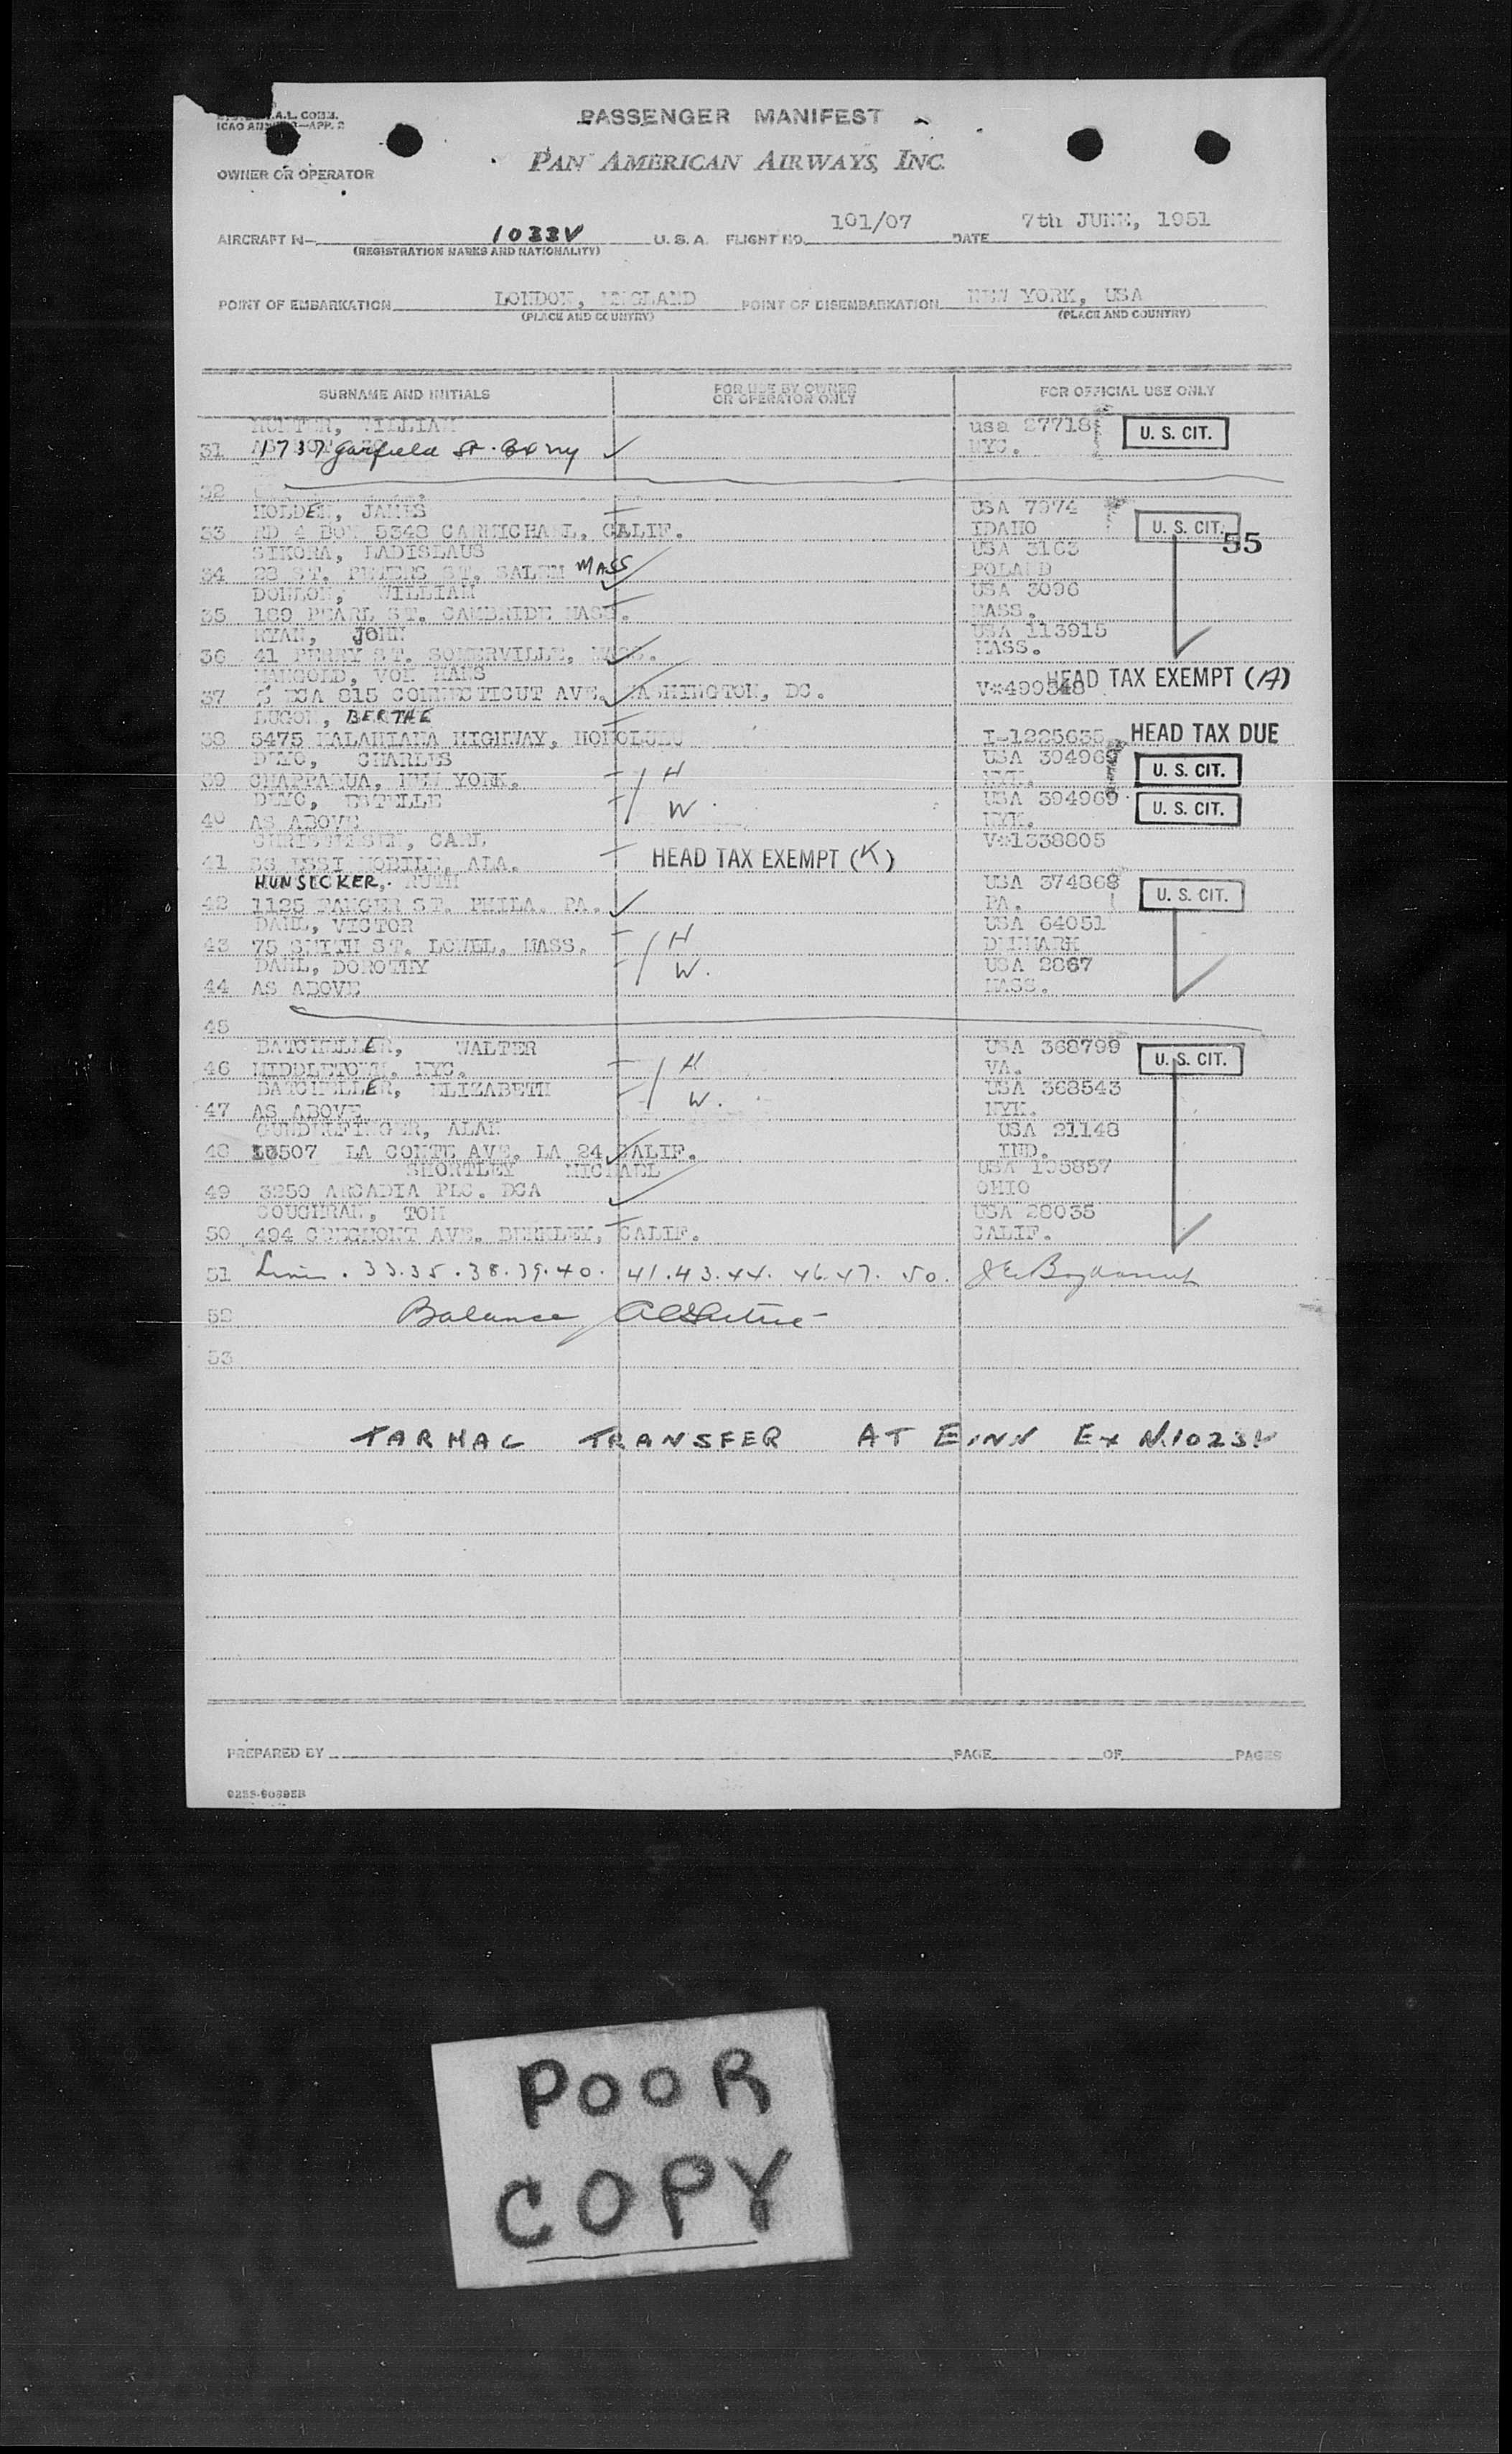 PASSENGER MANIFEST
PAN AMERICAN AIRWAYS, INC.
OWNER OR OPERATOR
AIRCRAFT N- 1033V U. S. A. FLIGHT NO. 101/07 DATE 7th JUNE, 1951
(REGISTRATION MARKS AND NATIONALITY)
POINT OF EMBARKATION LONDON, ENGLAND POINT OF DISEMBARKATION NEW YORK, USA
(PLACE AND COUNTRY) (PLACE AND COUNTRY)
SURNAME AND INITIALS FOR USE BY OWNER OR OPERATOR ONLY FOR OFFICIAL USE ONLY
HUNTER, WILLIAM usa 27718 U. S. CIT.
31 1737 Garfield St. Bx ny NYC.
32
HOLDEN, JAMES USA 7974
33 RD 4 BOX 5348 CARMICHAEL, CALIF. IDAHO U. S. CIT. 55
SIKORA, LADISLAUS USA 3163
34 23 ST. PETERS ST. SALEM MASS POLAND
DONLON, WILLIAM USA 3096
35 189 PEARL ST. CAMBRIDE MASS. MASS.
RYAN, JOHN USA 113915
36 41 PERRY ST. SOMERVILLE, MASS. MASS.
MANGOLD, VON HANS
37 ECA 815 CONNECTICUT AVE. WASHINGTON, DC. V*499348 HEAD TAX EXEMPT (A)
LUGON, BERTHE
38 5475 KALANIANA HIGHWAY, HONOLULU I-1225635 HEAD TAX DUE
DEYO, CHARLES USA 394969
39 CHAPPAQUA, NEW YORK. H NYK. U. S. CIT.
DEYO, ESTELLE USA 394969
40 AS ABOVE W. NYK. U. S. CIT.
CHRISTENSEN, CARL V*1338805
41 SS ISSI MOBILE, ALA. HEAD TAX EXEMPT (K)
HUNSICKER, RUTH USA 374868
42 1125 ST. PHILA. PA. PA. U. S. CIT.
DAHL, VICTOR USA 64051
43 75 SMITH ST. LOWEL, MASS. H DENMARK
DAHL, DOROTHY USA 2867
44 AS ABOVE W. MASS.
45
BATCHELLER, WALTER USA 368799
46 MIDDLETOWN, NYC. H VA. U. S. CIT.
BATCHELLER, ELIZABETH USA 368543
47 AS ABOVE W. NYK.
GUNDELFINGER, ALAN USA 21148
48 10507 LA CONTE AVE. LA 24 CALIF. IND.
SHORTLEY MICHAEL USA 105857
49 3250 ARCADIA PLC. DCA OHIO
COUGHRAN, TOM USA 28035
50 494 CREGMONT AVE. BERKLEY, CALIF. CALIF.
51 Lines. 33.35.38.39.40. 41.43.44. 46.47. 50.
52 Balance
53
TARMAC TRANSFER AT EINN Ex N.1023V
PREPARED BY PAGE OF PAGES
POOR
COPY